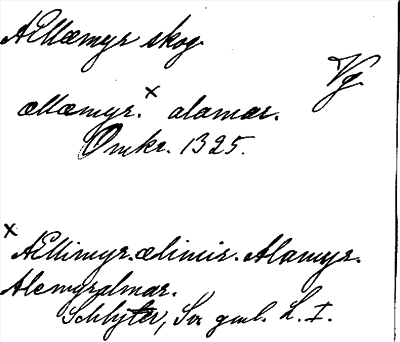 Ællæmyr skog.
Vg.
ællæmyr.× alamar.
Omkr. 1325.
× Ællimyr. ælimir. Alamyr.
Alemyr almar.
Schlyter, Sv. gml. L. I.